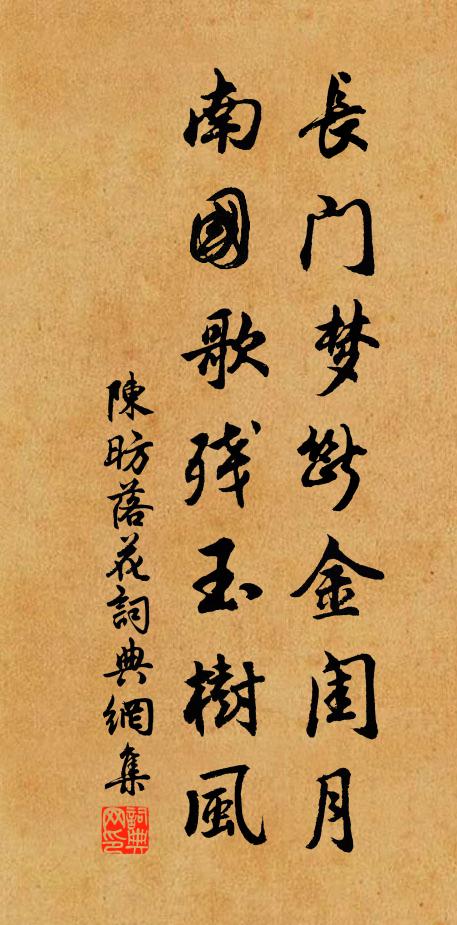 長门梦斷金闺月
南國歌残玉樹風
陳昉落花詞典網集
詞典网印